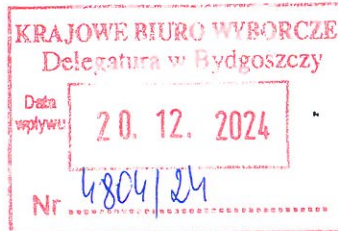 KRAJOWE BIURO WYBORCZE
Delegatura w Bydgoszczy
Data
wpływu
20. 12. 2024
Nr 4804/24